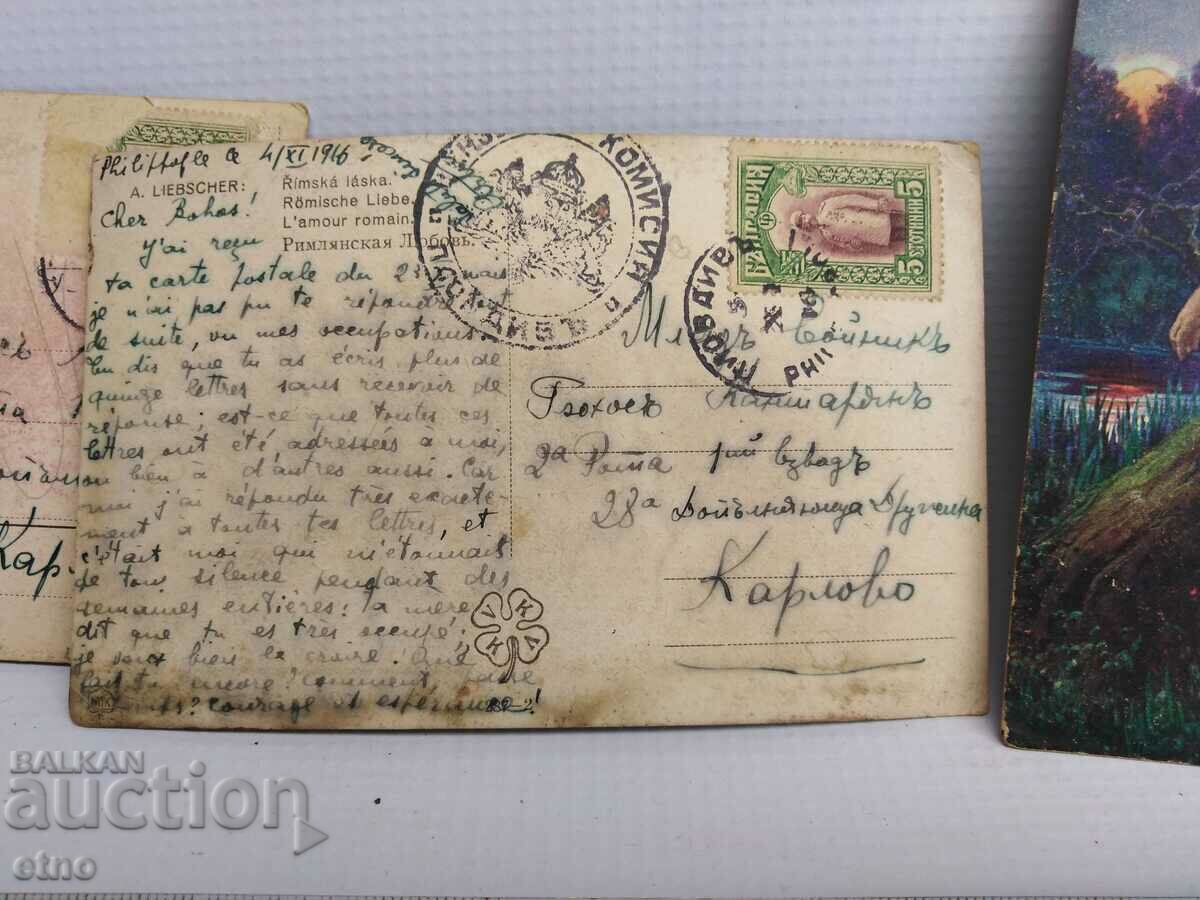 Philippople le 4/XI 1916
A. LIEBSCHER:
Římská láska.
Römische Liebe.
L'amour romain.
Римлянская Любовь.
Cher Bohos!
J'ai reçu
ta carte postale du 23 mais
je n'ai pas pu te répondre tout
de suite, vu mes occupations.
Tu dis que tu as écris plus de
quinze lettres sans recevoir de
réponse; est-ce que toutes ces
lettres ont été adressées a moi,
ou bien à d'autres aussi. Car
moi j'ai répondu très exacte-
ment a toutes tes lettres, et
c'était moi qui m'étonnais
de ton silence pendant des
semaines entières! Ta mère
dit que tu es très occupé;
je veux bien le croire. Que
fais tu encore? Comment
courage et espérance!
КОМИСИЯ
ПЛОВДИВЪ
БЪЛГАРИЯ
5 СТОТИНКИ 5
ПЛОВДИВ
PHIL
Бохосъ
2ра Рота 1рий взводъ
28а Допълняюща Дружина
Карлово
K V K V
232-2
Кар
BALKAN
auction
etno